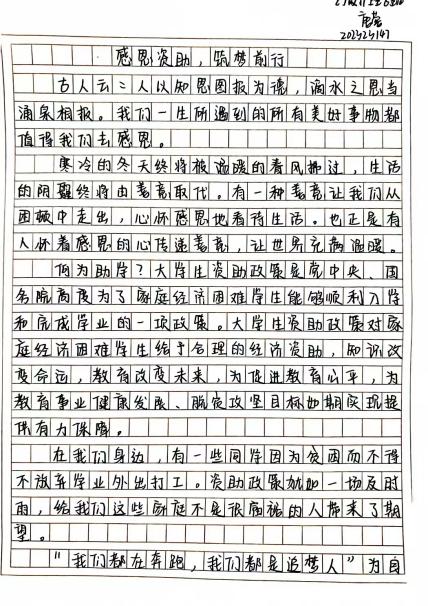 感恩资助，筑梦前行
古人云：人以知恩图报为德，滴水之恩当
涌泉相报。我们一生所遇到的所有美好事物都
值得我们去感恩。
寒冷的冬天终将被温暖的春风拂过，生活
的阴霾终将由善意取代。有一种善意让我们从
困顿中走出，心怀感恩地看待生活。也正是有
人怀着感恩的心传递善意，让世界充满温暖。
何为助学？大学生资助政策是党中央、国
务院高度为了家庭经济困难学生能够顺利入学
和完成学业的一项政策。大学生资助政策对家
庭经济困难学生给予合理的经济资助，知识改
变命运，教育改变未来，为促进教育公平，为
教育事业健康发展、脱贫攻坚目标如期实现提
供有力保障。
在我们身边，有一些同学因为贫困而不得
不放弃学业外出打工。资助政策就如一场及时
雨，给我们这些家庭不是很富裕的人带来了期
望。
“我们都在奔跑，我们都是追梦人”为自